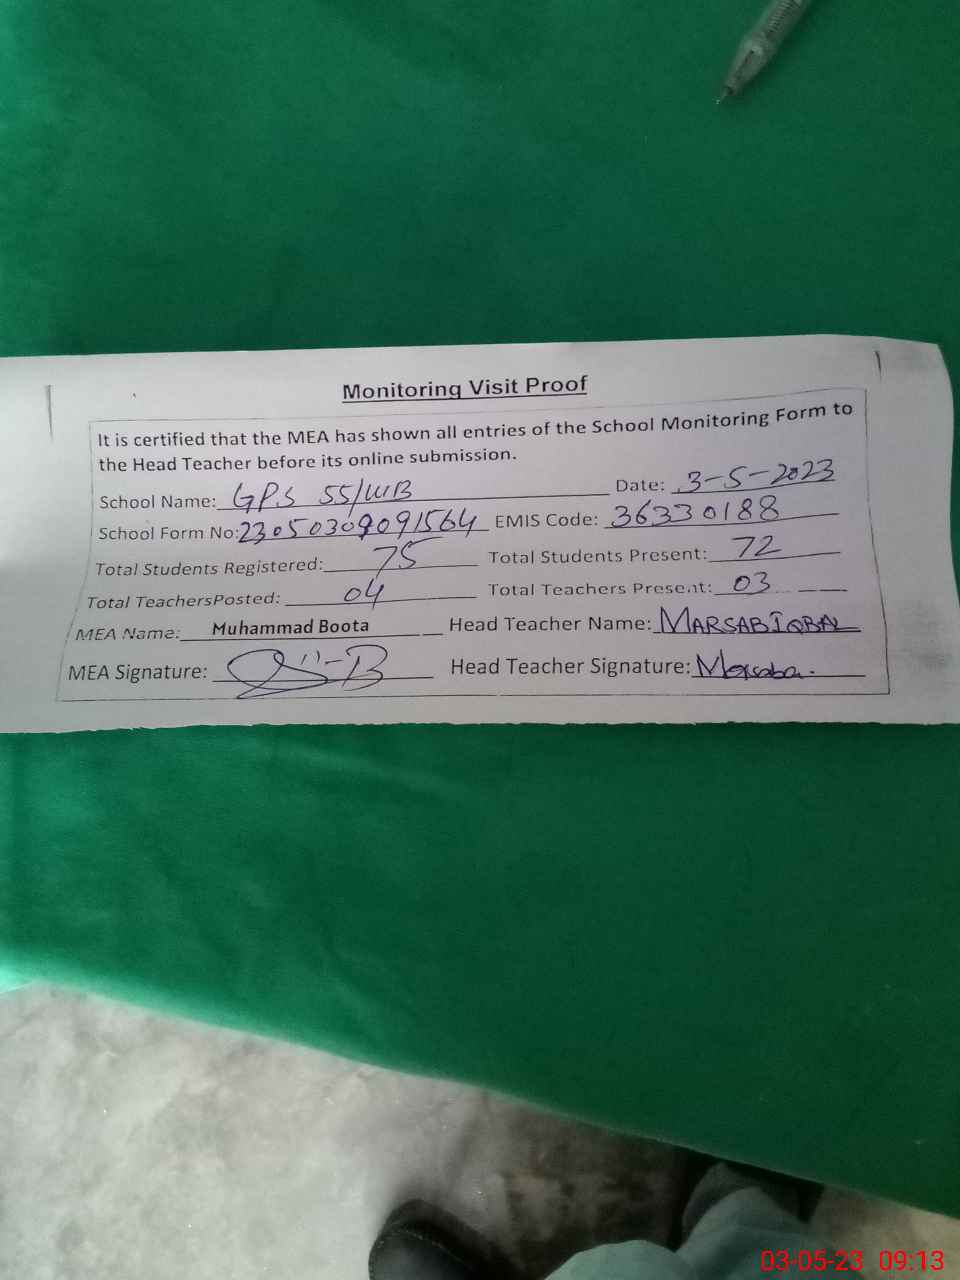 Monitoring Visit Proof
It is certified that the MEA has shown all entries of the School Monitoring Form to
the Head Teacher before its online submission.
School Name: GPS 55/WB Date: 3-5-2023
School Form No: 23050309091564 EMIS Code: 36330188
Total Students Registered: 75 Total Students Present: 72
Total TeachersPosted: 04 Total Teachers Present: 03
MEA Name: Muhammad Boota Head Teacher Name: MARSAB IQBAL
MEA Signature: Head Teacher Signature:
03-05-23 09:13